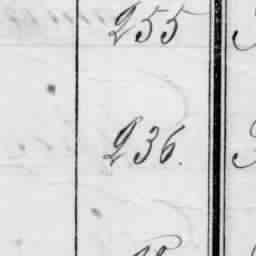 255
236.